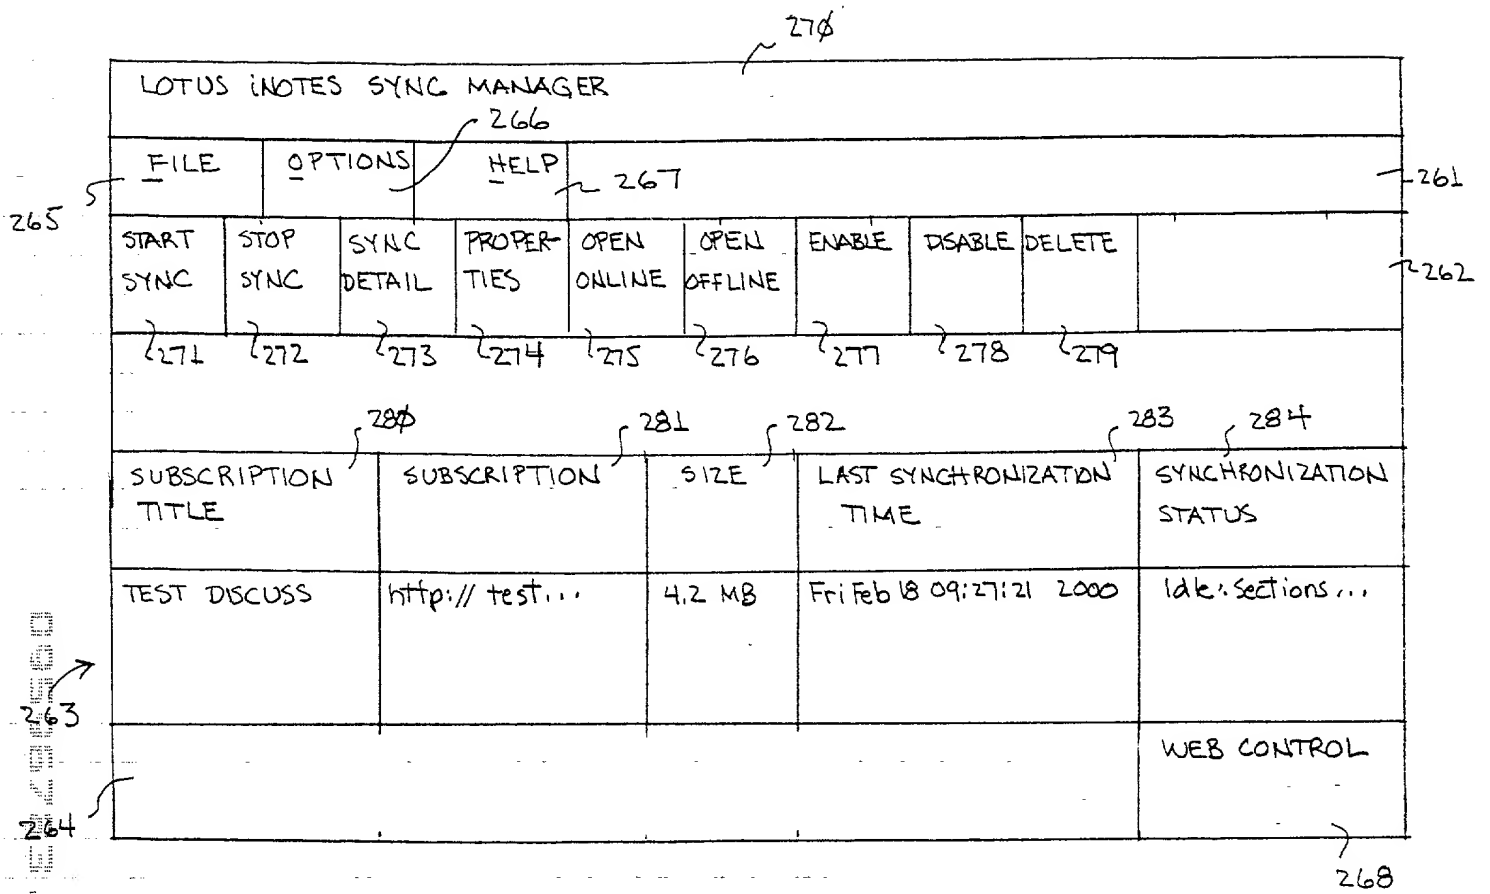 270
LOTUS iNOTES SYNC MANAGER
266
FILE OPTIONS HELP 267 261
265
START SYNC
STOP SYNC
SYNC DETAIL
PROPER-
TIES
OPEN ONLINE
OPEN OFFLINE
ENABLE
DISABLE
DELETE
262
271 272 273 274 275 276 277 278 279
280 281 282 283 284
SUBSCRIPTION
TITLE
SUBSCRIPTION
SIZE
LAST SYNCHRONIZATION
TIME
SYNCHRONIZATION
STATUS
TEST DISCUSS http:// test... 4.2 MB Fri Feb 18 09:27:21 2000 Idle: Sections...
263
WEB CONTROL
264
268